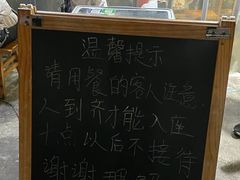 温馨提示
请用餐的客人注意
人到齐才能入座
十点以后不接待
谢谢理解